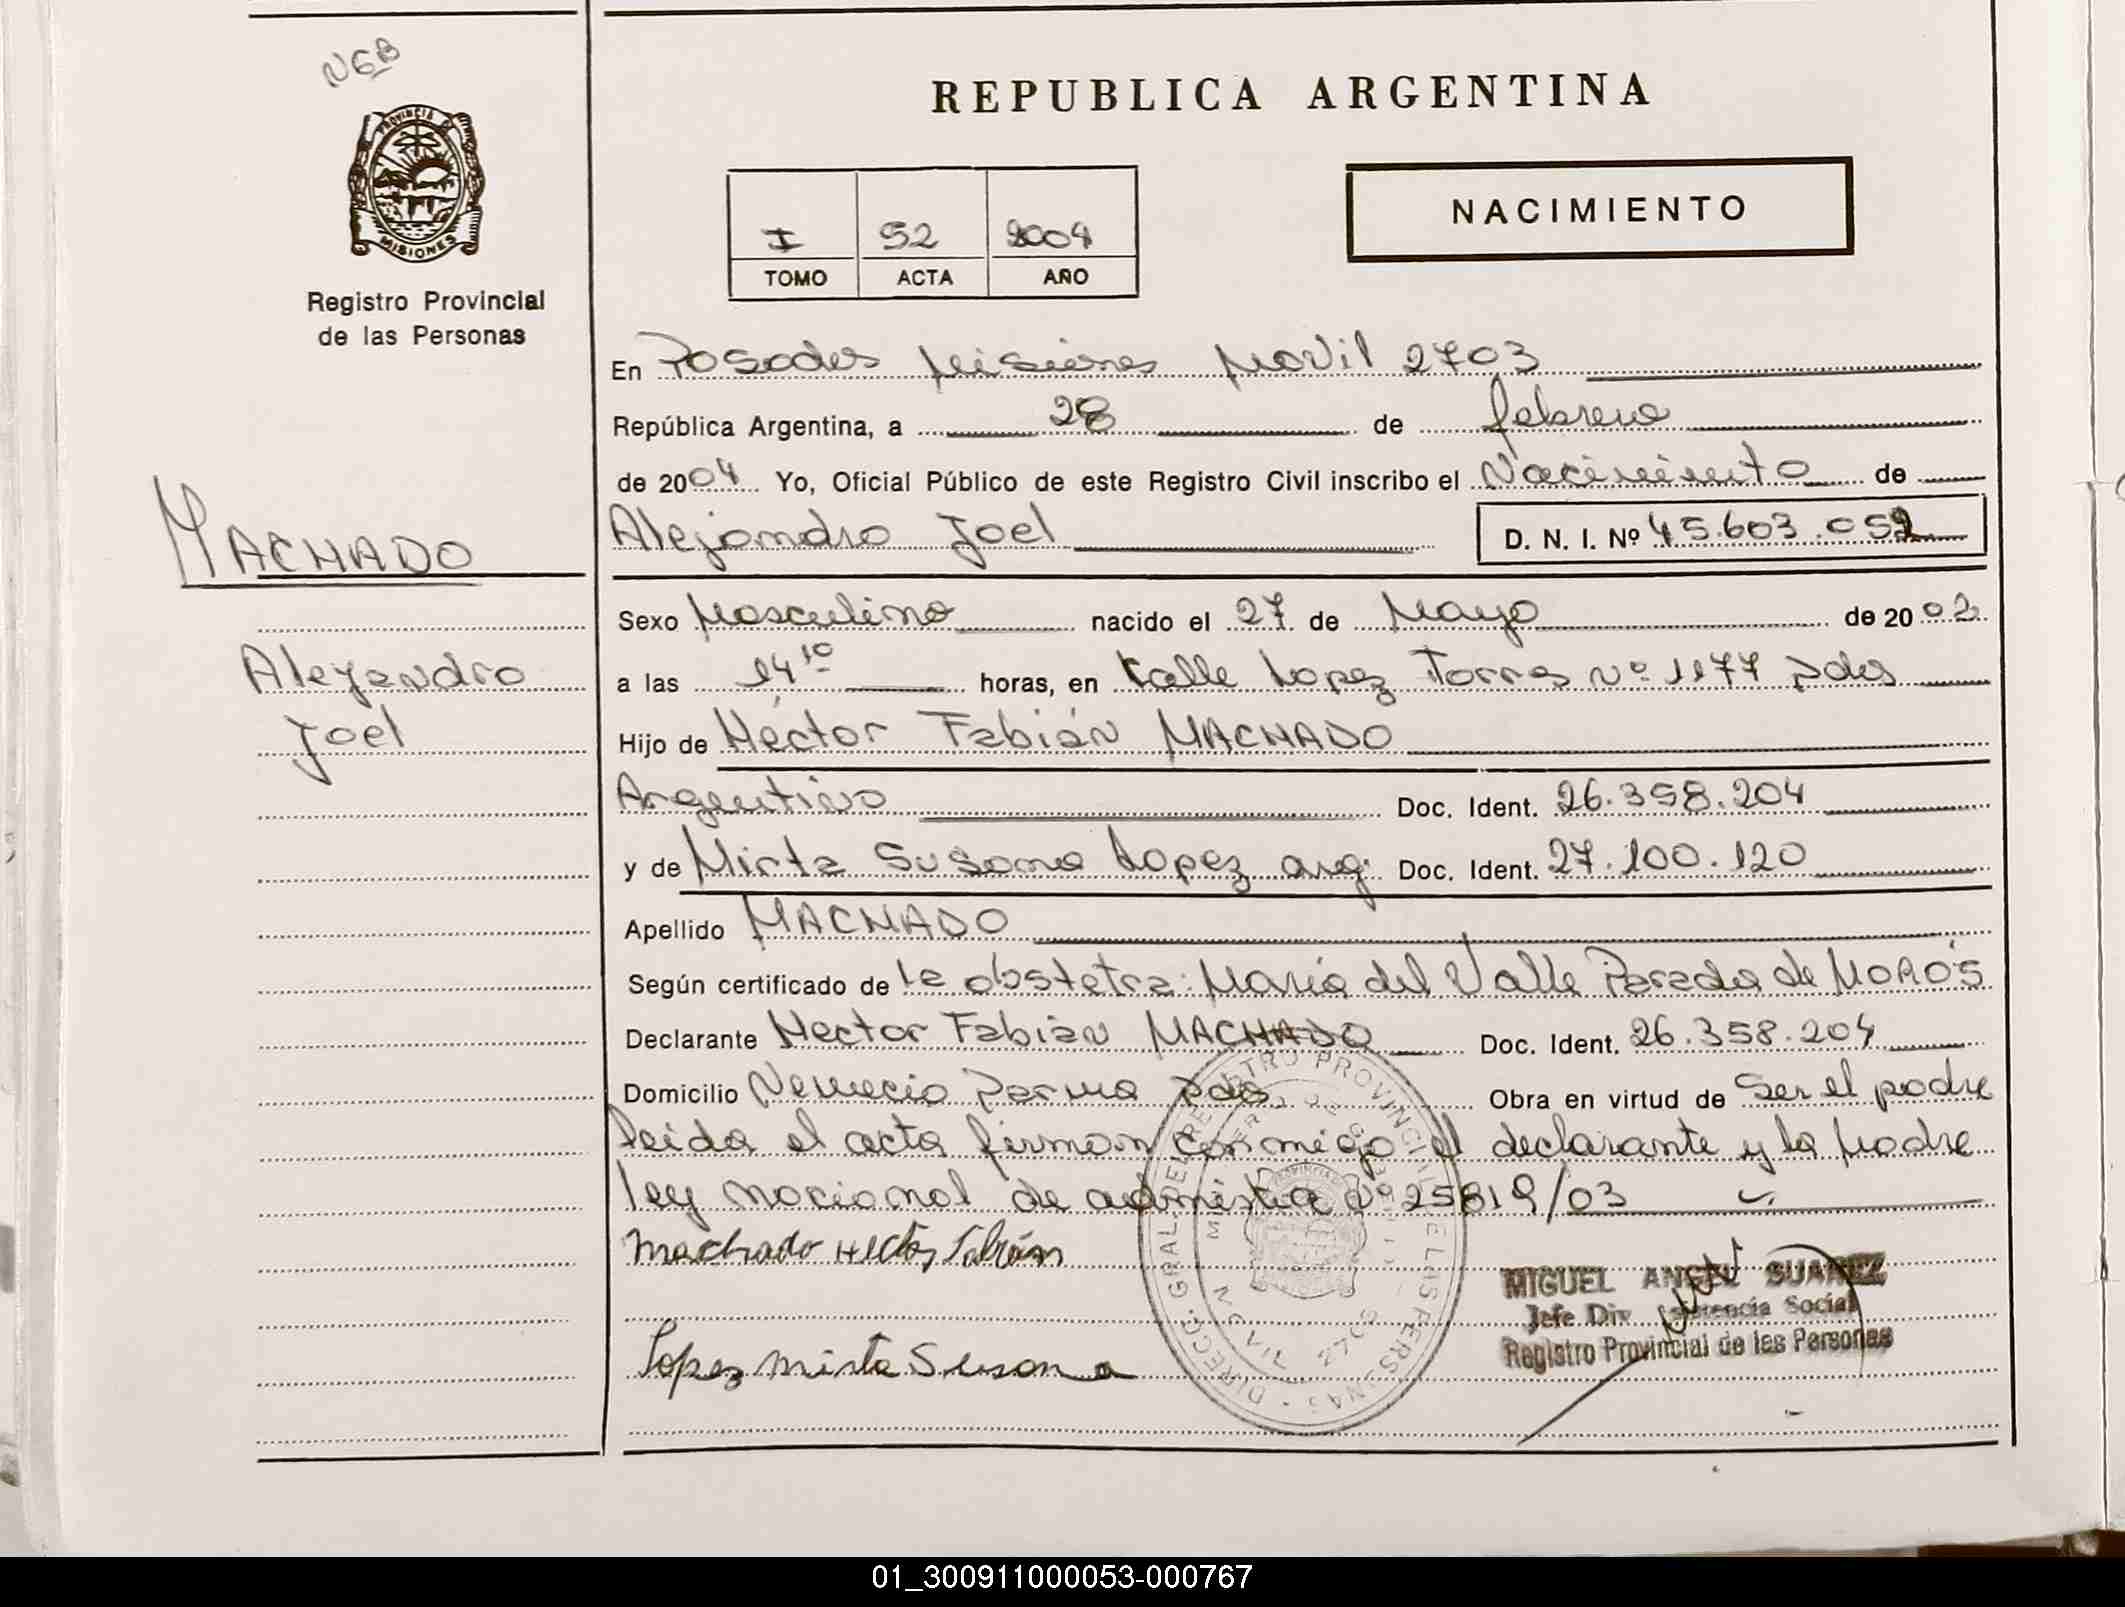 NGB
PROVINCIA DE
MISIONES
Registro Provincial
de las Personas
REPUBLICA ARGENTINA
I 52 2004
TOMO ACTA AÑO
NACIMIENTO
En Posadas Misiones Movil 2703
República Argentina, a 28 de febrero
de 2004 Yo, Oficial Público de este Registro Civil inscribo el Nacimiento de
MACHADO
Alejandro Joel D. N. I. Nº 45.603.052
Alejandro
Joel
Sexo Masculino nacido el 27 de Mayo de 2002
a las 14 10 horas, en Calle Lopez Torres Nº 1177 pdas
Hijo de Héctor Fabián MACHADO
Argentino Doc. Ident. 26.358.204
y de Mirta Susana Lopez arg. Doc. Ident. 27.100.120
Apellido MACHADO
Según certificado de la obstetra: María del Valle Parada de MOROS
Declarante Hector Fabián MACHADO Doc. Ident. 26.358.204
Domicilio Nemecio Parma pdas Obra en virtud de Ser el padre
leida el acta firman conmigo el declarante y la Madre
ley nacional de admistia Nº 25819/03
Machado Hector Fabián
Lopez Mirta Susana
MIGUEL ANGEL SUAREZ
Jefe Div Asistencia Social
Registro Provincial de las Personas
01_300911000053-000767